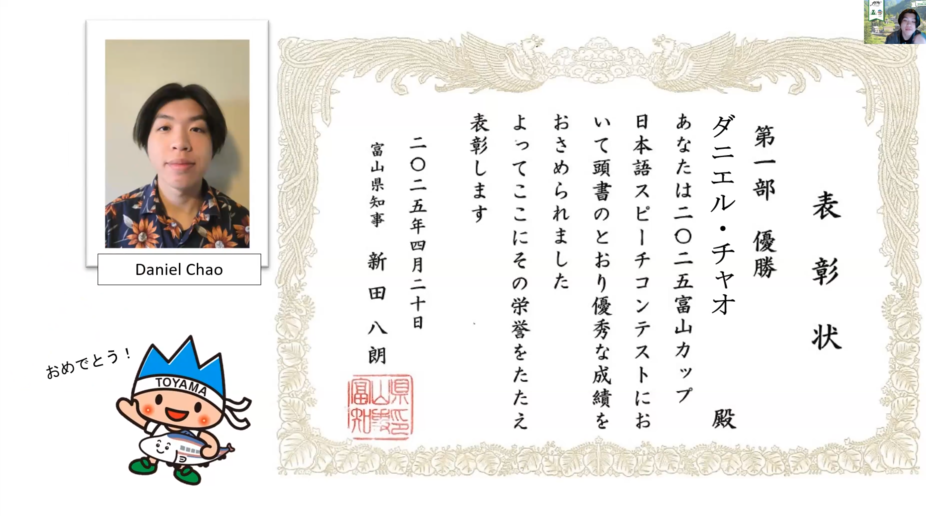 表彰状
第一部 優勝
ダニエル・チャオ 殿
あなたは二〇二五富山カップ
日本語スピーチコンテストにお
いて頭書のとおり優秀な成績を
おさめられました
よってここにその栄誉をたたえ
表彰します
二〇二五年四月二十日
富山県知事 新田八朗
Daniel Chao
おめでとう!
TOYAMA